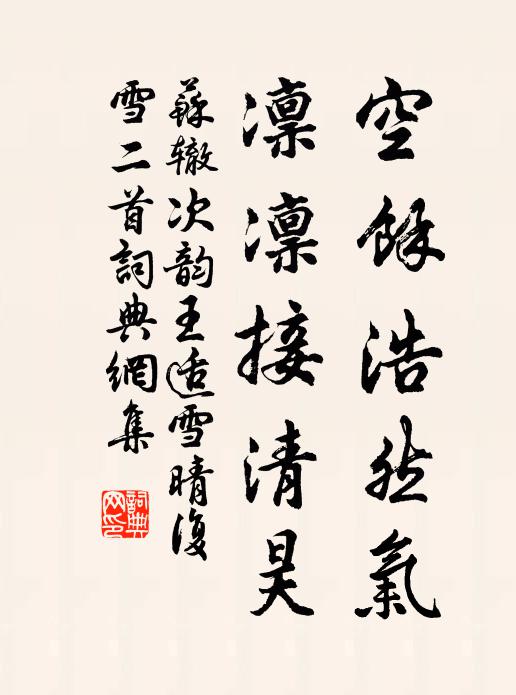 空餘浩然氣
凛凛接清昊
蘇辙次韵王适雪晴復
雪二首詞典網集
詞典网印